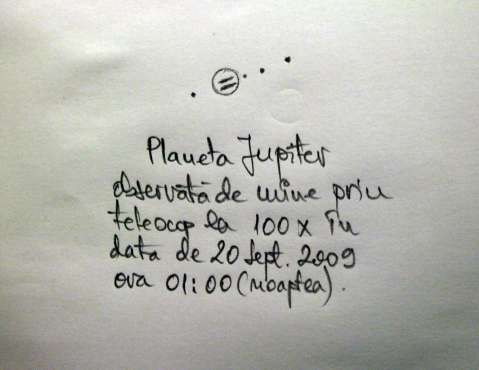 Planeta Jupiter
observată de mine prin
telescop la 100 x în
data de 20 sept. 2009
ora 01:00 (noaptea).